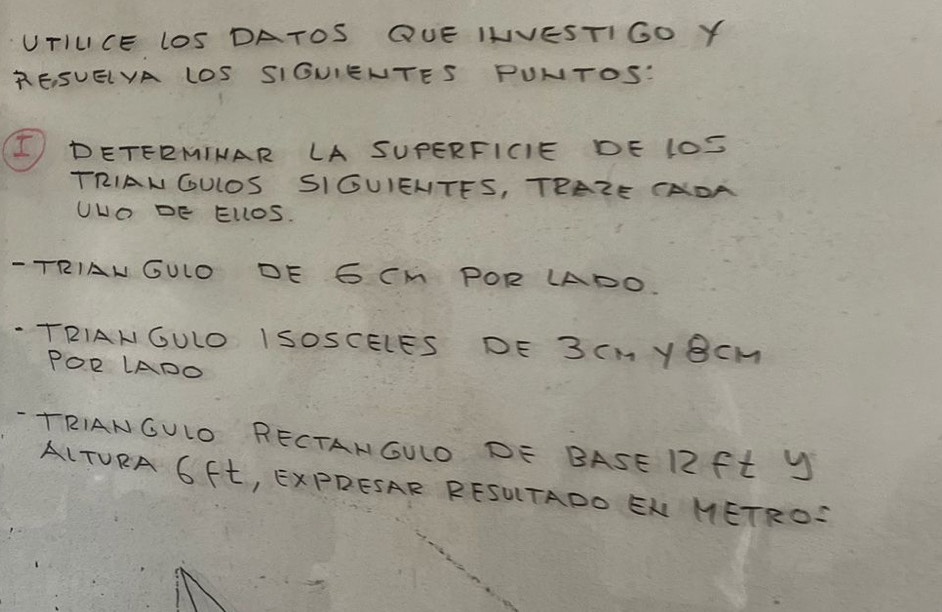 UTILICE LOS DATOS QUE INVESTIGO Y
RESUELVA LOS SIGUIENTES PUNTOS:
I DETERMINAR LA SUPERFICIE DE LOS
TRIANGULOS SIGUIENTES, TRAZE CADA
UNO DE ELLOS.
- TRIANGULO DE 6 CM POR LADO.
- TRIANGULO ISOSCELES DE 3 CM Y 8 CM
POR LADO
- TRIANGULO RECTANGULO DE BASE 12 ft Y
ALTURA 6 ft, EXPRESAR RESULTADO EN METROS